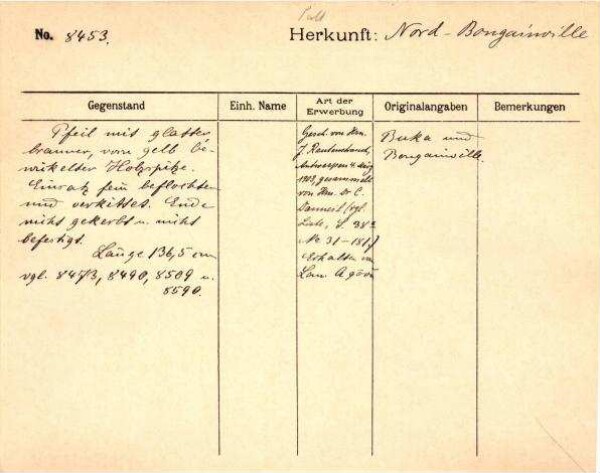 No. 8453.
Herkunft: Nord-Bougainville
Gegenstand
Einh. Name
Art der
Erwerbung
Originalangaben
Bemerkungen
Pfeil mit glatter
brauner, vorn gelb be-
wickelter Holzspitze.
Einsatz fein beflochten
und verkittet. Ende
nicht gekerbt u. nicht
befestigt.
Länge 136,5 cm
vgl. 8473, 8490, 8509 u.
8590.
Gesch. von Hrn.
J. Rautenstrauch,
Antwerpen 4. März
1903, gesammelt
von Hrn. Dr C.
(vgl.
Liste, S. 383
No 31-181)
Erhalten von
Buka und
Bougainville.